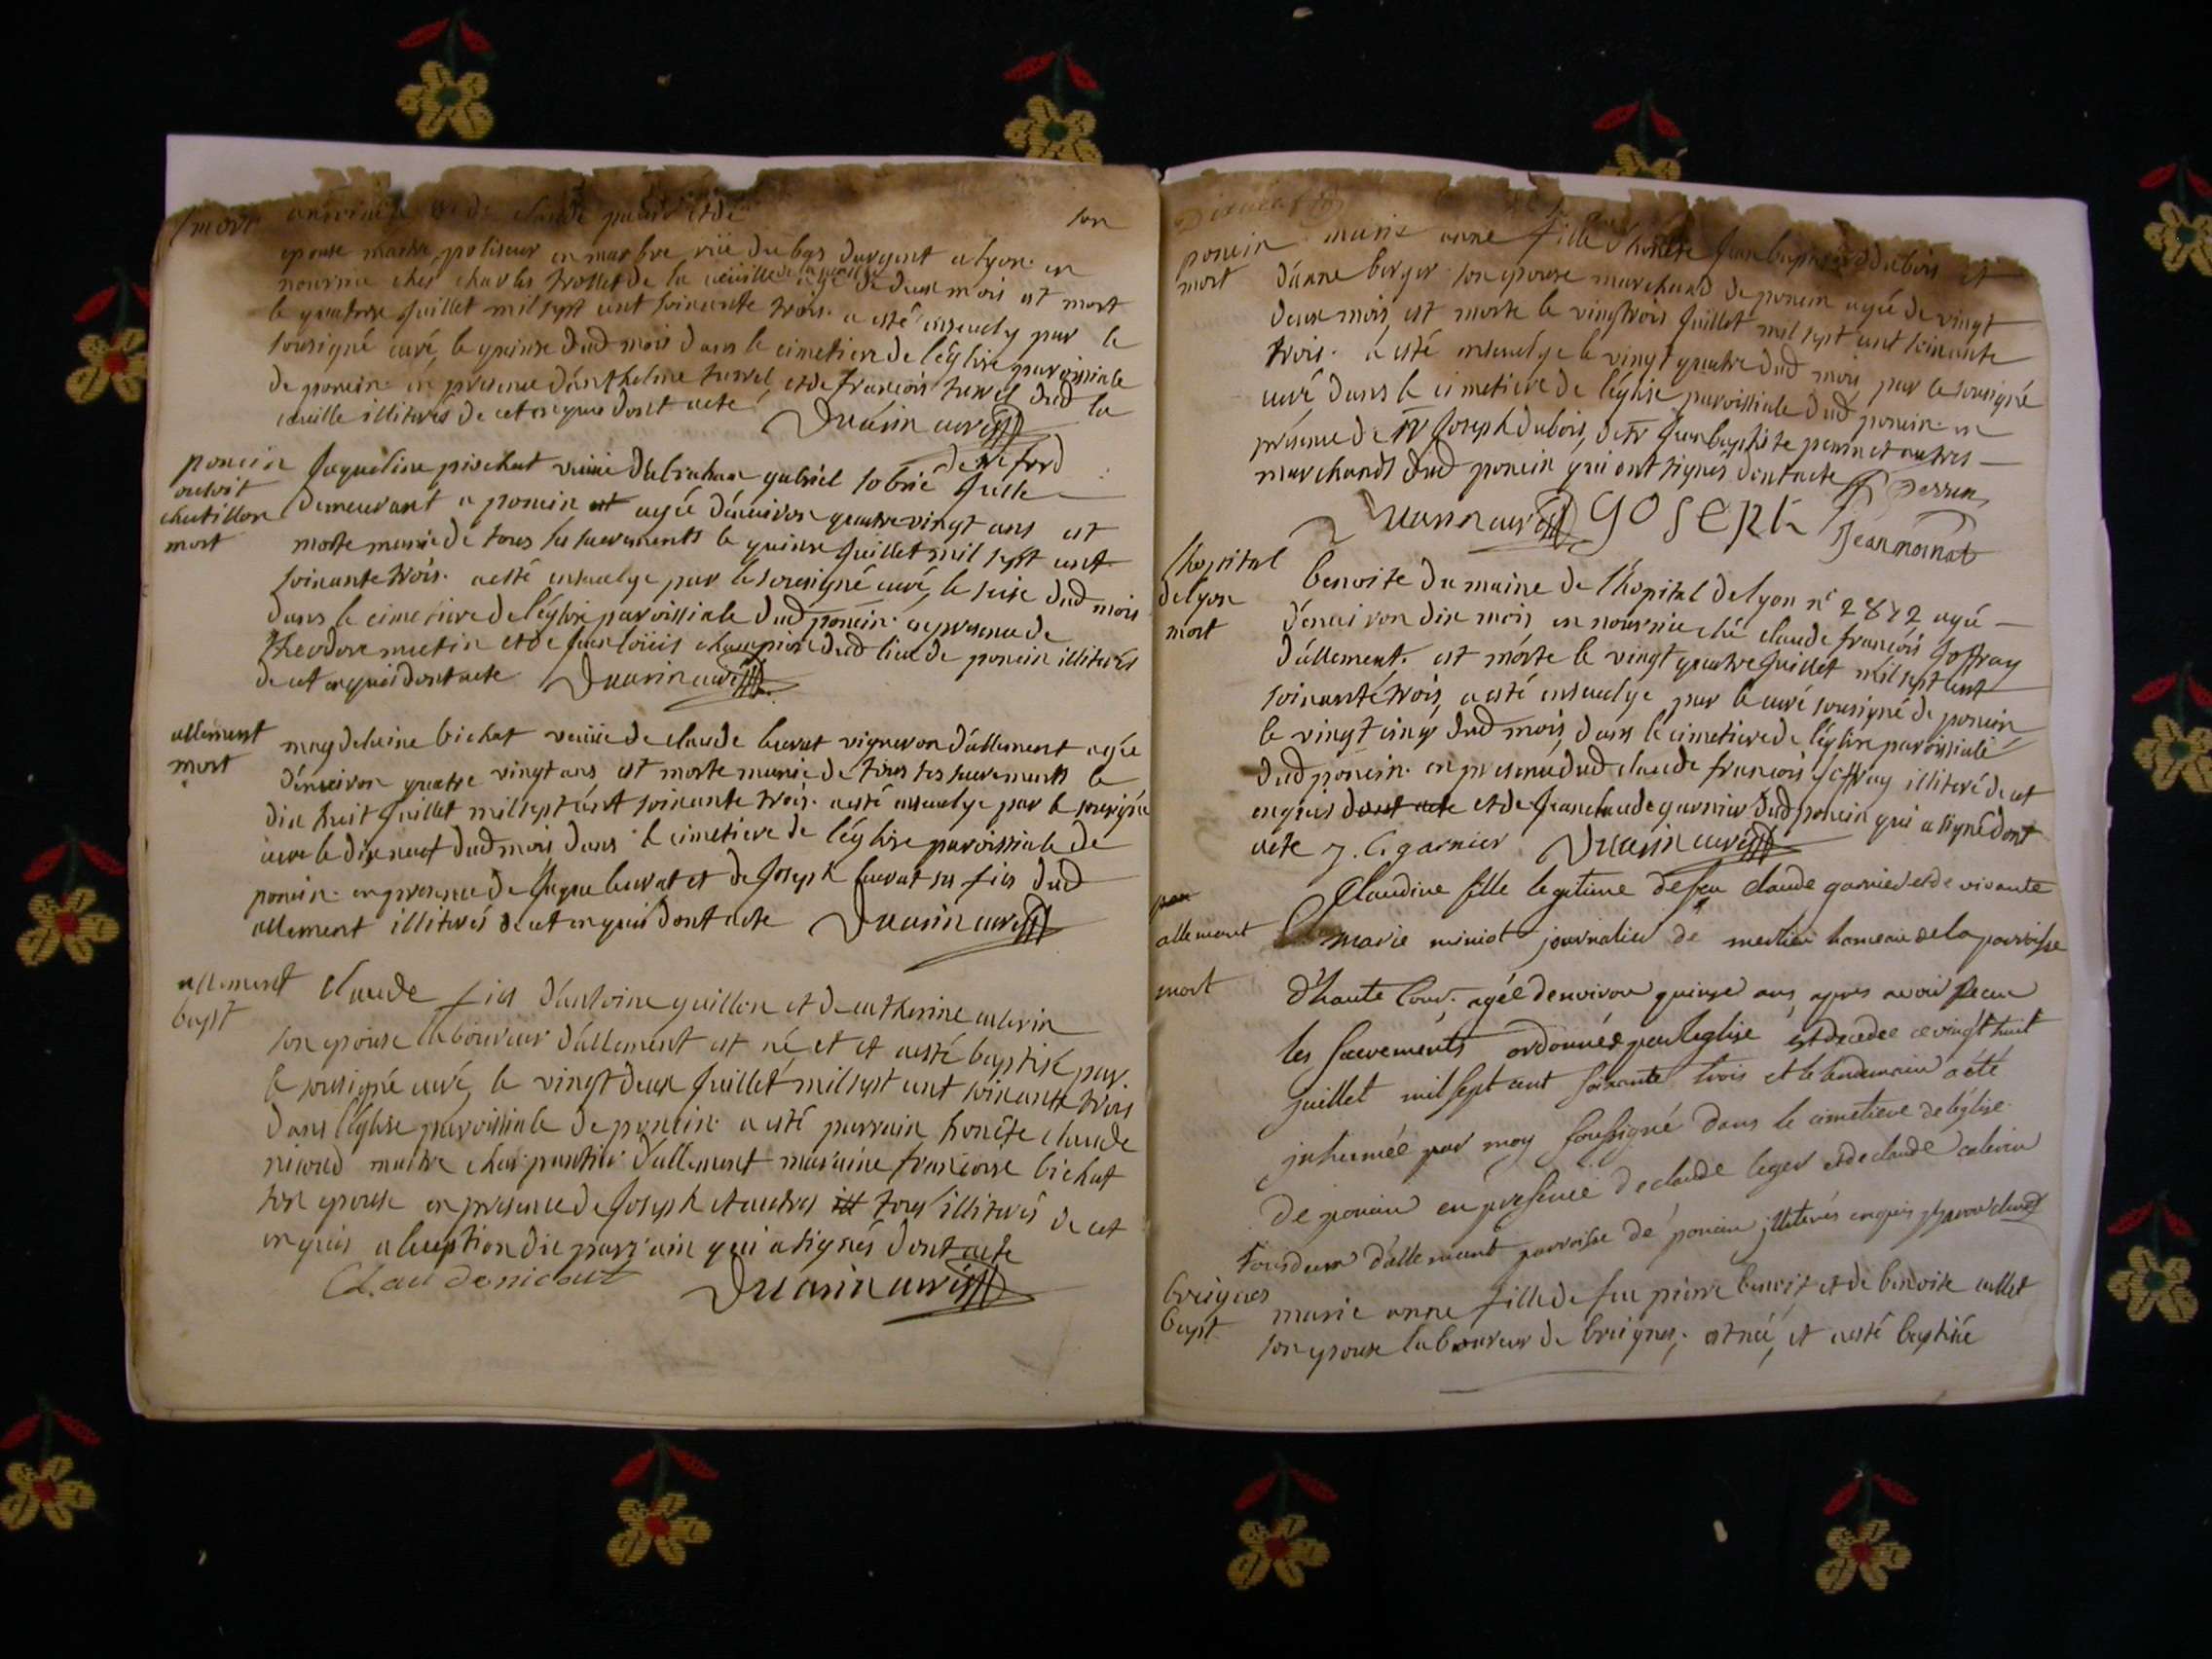 mort
claude son
epouse maitre poliseur en marbre rüe du bas dargent a lyon. en
nourrice ches charles trollet de la cueuille agé de deux mois est mort
le quatorse juillet mil sept cent soixante trois. a esté enseuely par le
sousigné curé, le quinse dud mois dans le cimetiere de l'église paroissiale
de poncin. en presence d'anthelme turrel et de francois turrel dud la
cueuille illiterés de cet enquis dont acte
poncin
mort
jaqueline pischat veuue d'abraham gabriel
demeurant a poncin agée d'enuiron quatre vingt ans est
morte munie de tous ses sacrements le quinse juillet mil sept cent
soixante trois. a esté enseuelye par le sousigné curé, le seise dud mois
dans le cimetiere de l'église paroissiale dud poncin. en presence de
theodore mutin et de jean loüis champion dud lieu de poncin illiterés
de cet enquis dont acte
allement
mort
magdelaine bichat veuue de claude buvat vigneron d'allement agée
d'enuiron quatre vingt ans est morte munie de tous ses sacrements le
dix huit juillet mil sept cent soixante trois. a esté enseuelye par le sousigné
curé le dix neuf dud mois dans le cimetiere de l'église paroissiale de
poncin. en presence de jaque buvat et de joseph buvat ses fils dud
allement illiterés de cet enquis dont acte
allement
bapt
claude fils d'antoine guillon et de catherine
son epouse laboureur d'allement est né et et a esté baptisé par
le sousigné curé, le vingt deux juillet mil sept cent soixante trois
dans l'église paroissiale de poncin. a esté parrain honête claude
nicoud maitre charpantier d'allement maraine francoise bichat
son epouse en presence de joseph et autres tous illiterés de cet
enquis a l'exeption du parrain qui a signés dont acte
poncin
mort
marie anne fille d'honête jean baptiste dubois et
d'anne berger son epouse marchand de poncin agée de vingt
deux mois est morte le vingtrois juillet mil sept cent soixante
trois. a esté enseuelye le vingt quatre dud mois par le sousigné
curé dans le cimetiere de l'église paroissiale dud poncin. en
presence de sr joseph dubois, de sr jean baptiste perrin et autres
marchands dud poncin qui ont signés dont acte
perrin
l'hopital
de lyon
mort
benoite du maine de l'hopital de lyon n° 2872 agée
d'enuiron dix mois en nourrice ché claude francois joffray
d'allement. est morte le vingt quatre juillet mil sept cent
soixante trois, a esté enseuelye par le curé sousigné de poncin
le vingt cinq dud mois, dans le cimetiere de l'église paroissiale
dud poncin. en presence dud claude francois joffray illiteré de cet
enquis dont acte et de jean claude garnier dud poncin qui a signé dont
acte j. C. garnier
allement
mort
Claudine fille legitime de feu claude garnier et de vivante
marie miniot journalier de merlieu hameau de la parroisse
d'haute Cour. agée d'environ quinze ans, apres avoir recu
les sacrements ordonnés par l'eglise est decedee ce vingt huit
juillet mil sept cent soixante trois et le lendemain a été
inhumée par moy soussigné dans le cimetiere de l'église
de poncin en presence de claude leger et de claude caterin
tous deux d'allement parroisse de poncin illiterés enquis
breignes
bapt
marie anne fille de feu pierre benoit et de benoite callet
son epouse laboureur de breignes. est née, et a esté baptisée